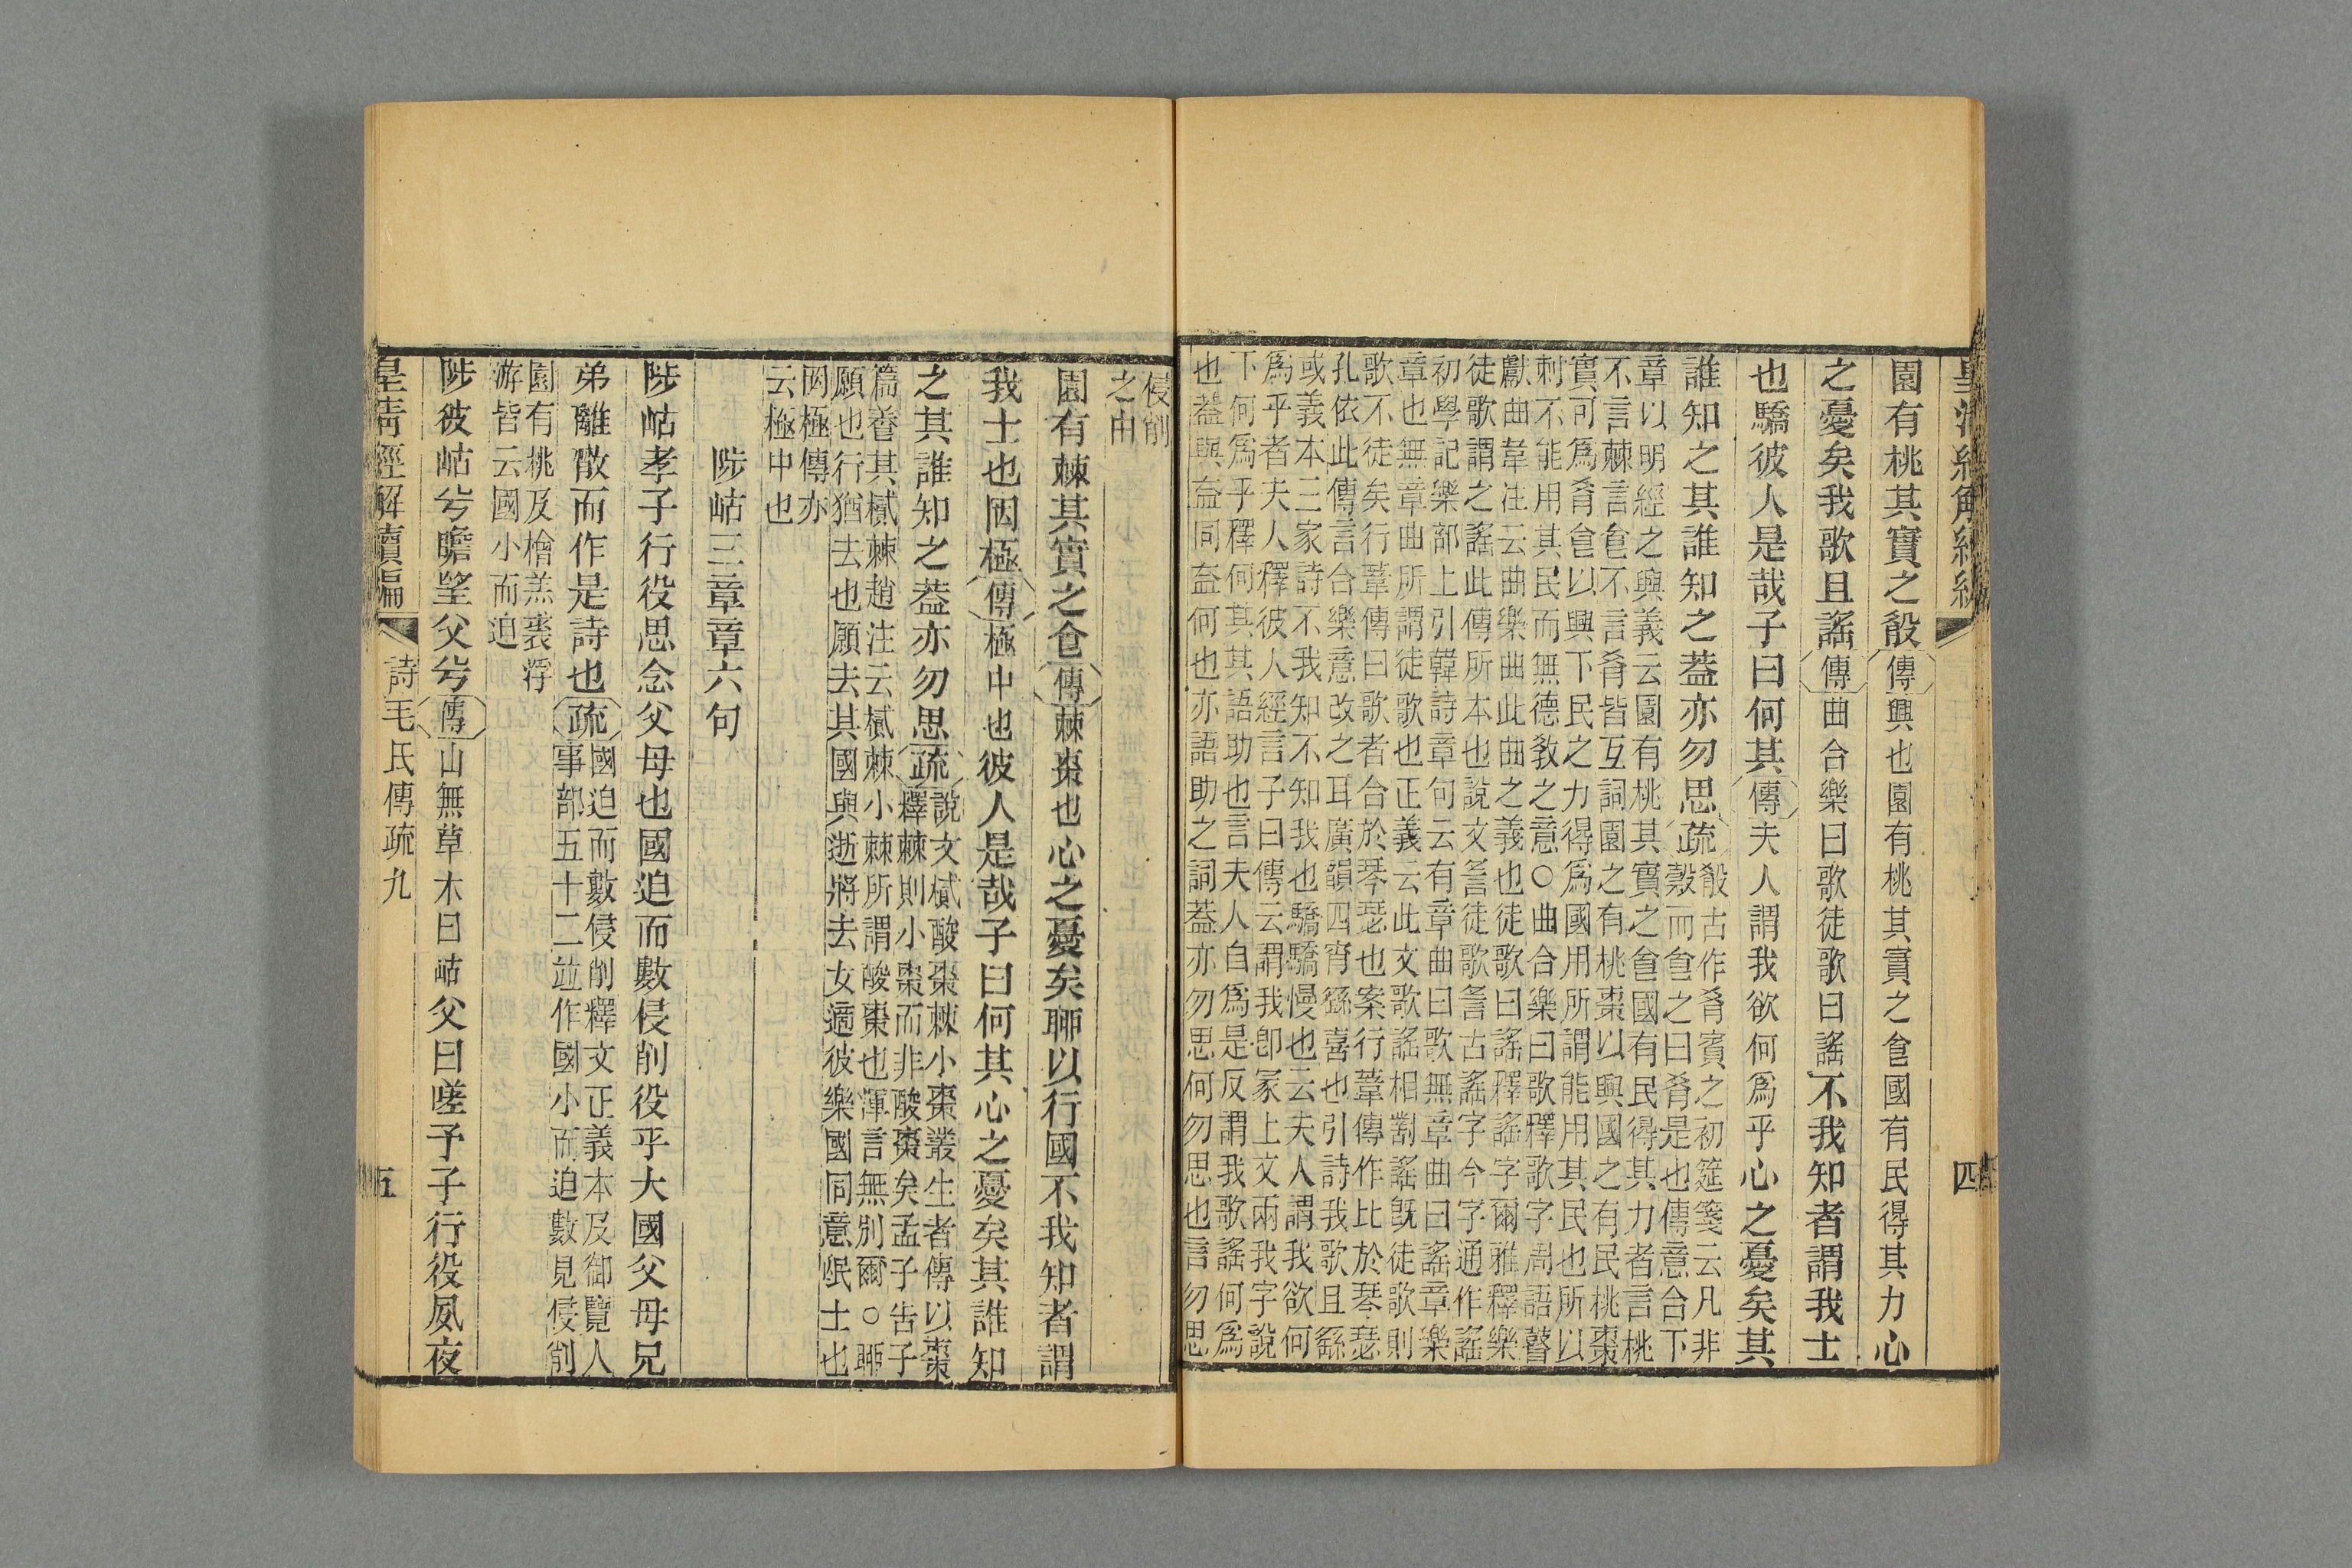 四
園有桃其實之殽傳興也園有桃其實之食國有民得其力心
之憂矣我歌且謠傳曲合樂曰歌徒歌曰謠不我知者謂我士
也驕彼人是哉子曰何其傳夫人謂我欲何爲乎心之憂矣其
誰知之其誰知之蓋亦勿思疏
殽古作肴賓之初筵箋云凡非
穀而食之曰肴是也傳意合下
章以明經之興義云園有桃其實之食國有民得其力者言桃
不言棘言食不言肴皆互詞園之有桃棗以興國之有民桃棗
實可爲肴食以興下民之力得爲國用所謂能用其民也所以
刺不能用其民而無德敎之意○曲合樂曰歌釋歌字周語瞽
獻曲韋注云曲樂曲此曲之義也徒歌曰謠釋謠字爾雅釋樂
徒歌謂之謠此傳所本也說文䚻徒歌䚻古謠字今字通作謠
初學記樂部上引韓詩章句云有章曲曰歌無章曲曰謠章樂
章也無章曲所謂徒歌也正義云此文歌謠相對謠旣徒歌則
歌不徒矣行葦傳曰歌者合於琴瑟也案行葦傳作比於琴瑟
孔依此傳言合樂意改之耳廣韻四宵繇喜也引詩我歌且繇
或義本三家詩不我知不知我也驕驕慢也云夫人謂我欲何
爲乎者夫人釋彼人經言子曰傳云謂我卽冡上文兩我字說
下何爲乎釋何其其語助也言夫人自爲是反謂我歌謠何爲
也蓋與盍同盍何也亦語助之詞蓋亦勿思何勿思也言勿思
侵削
之由
園有棘其實之食傳棘棗也心之憂矣聊以行國不我知者謂
我士也罔極傳極中也彼人是哉子曰何其心之憂矣其誰知
之其誰知之蓋亦勿思疏
說文樲酸棗棘小棗叢生者傳以棗
釋棘棘則小棗而非酸棗矣孟子告子
篇養其樲棘趙注云樲棘小棘所謂酸棗也渾言無別爾○聊
願也行猶去也願去其國與逝將去女適彼樂國同意氓士也
罔極傳亦
云極中也
陟岵三章章六句
陟岵孝子行役思念父母也國迫而數侵削役乎大國父母兄
弟離散而作是詩也疏
國迫而數侵削釋文正義本及御覽人
事部五十二竝作國小而迫數見侵削
園有桃及檜羔裘浮
游皆云國小而迫
陟彼岵兮瞻望父兮傳山無草木曰岵父曰嗟予子行役夙夜
皇淸經解續編
詩毛氏傳疏九
五